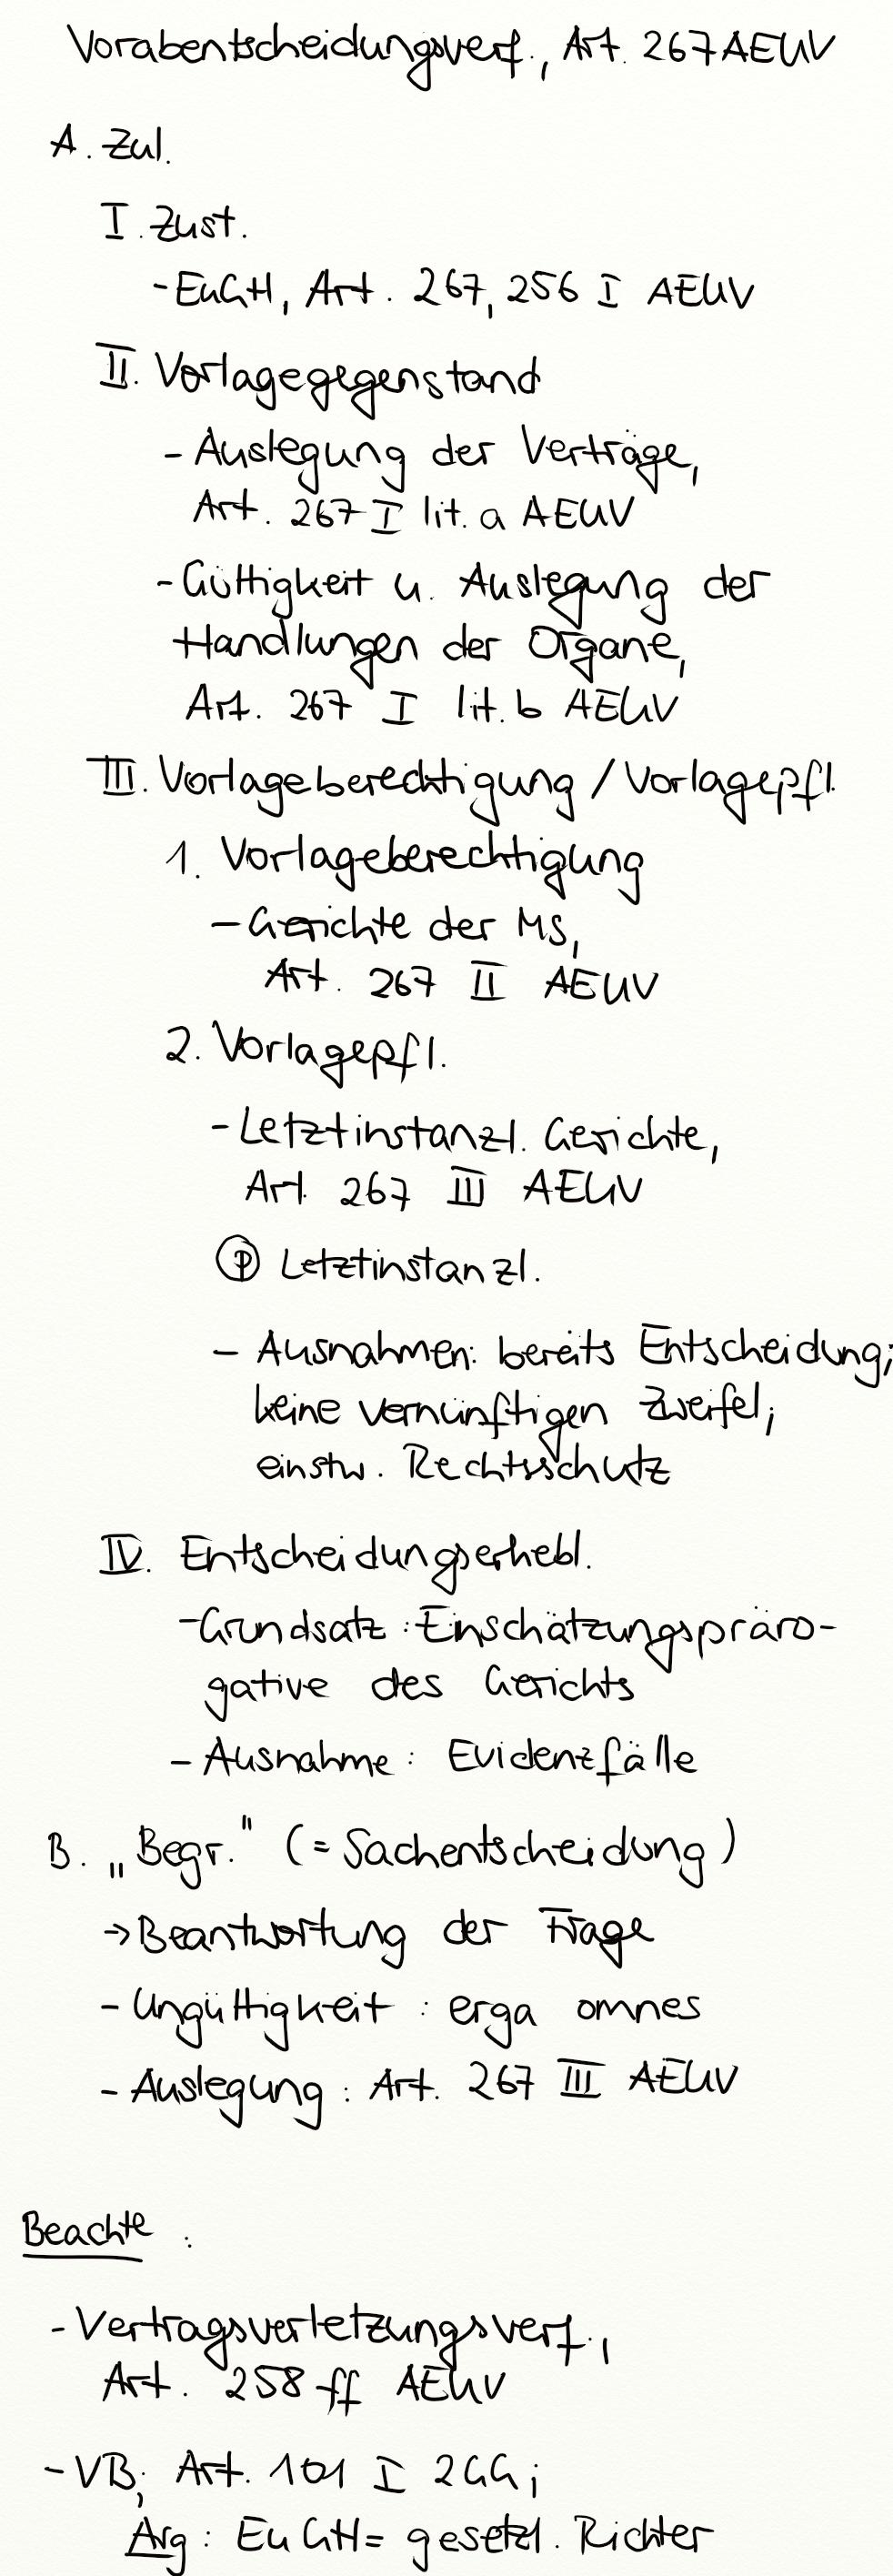 Vorabentscheidungsverf., Art. 267 AEUV
A. Zul.
I. Zust.
- EuGH, Art. 267, 256 I AEUV
II. Vorlagegegenstand
- Auslegung der Verträge,
Art. 267 I lit. a AEUV
- Gültigkeit u. Auslegung der
Handlungen der Organe,
Art. 267 I lit. b AEUV
III. Vorlageberechtigung / Vorlagepfl.
1. Vorlageberechtigung
- Gerichte der MS,
Art. 267 II AEUV
2. Vorlagepfl.
- Letztinstanzl. Gerichte,
Art. 267 III AEUV
Ⓟ Letztinstanzl.
- Ausnahmen: bereits Entscheidung;
keine vernünftigen Zweifel;
einstw. Rechtsschutz
IV. Entscheidungserhebl.
- Grundsatz: Einschätzungspräro-
gative des Gerichts
- Ausnahme: Evidenzfälle
B. „Begr." (= Sachentscheidung)
→ Beantwortung der Frage
- Ungültigkeit: erga omnes
- Auslegung: Art. 267 III AEUV
Beachte:
- Vertragsverletzungsverf.,
Art. 258 ff AEUV
- VB; Art. 101 I 2 GG;
Arg: EuGH = gesetzl. Richter